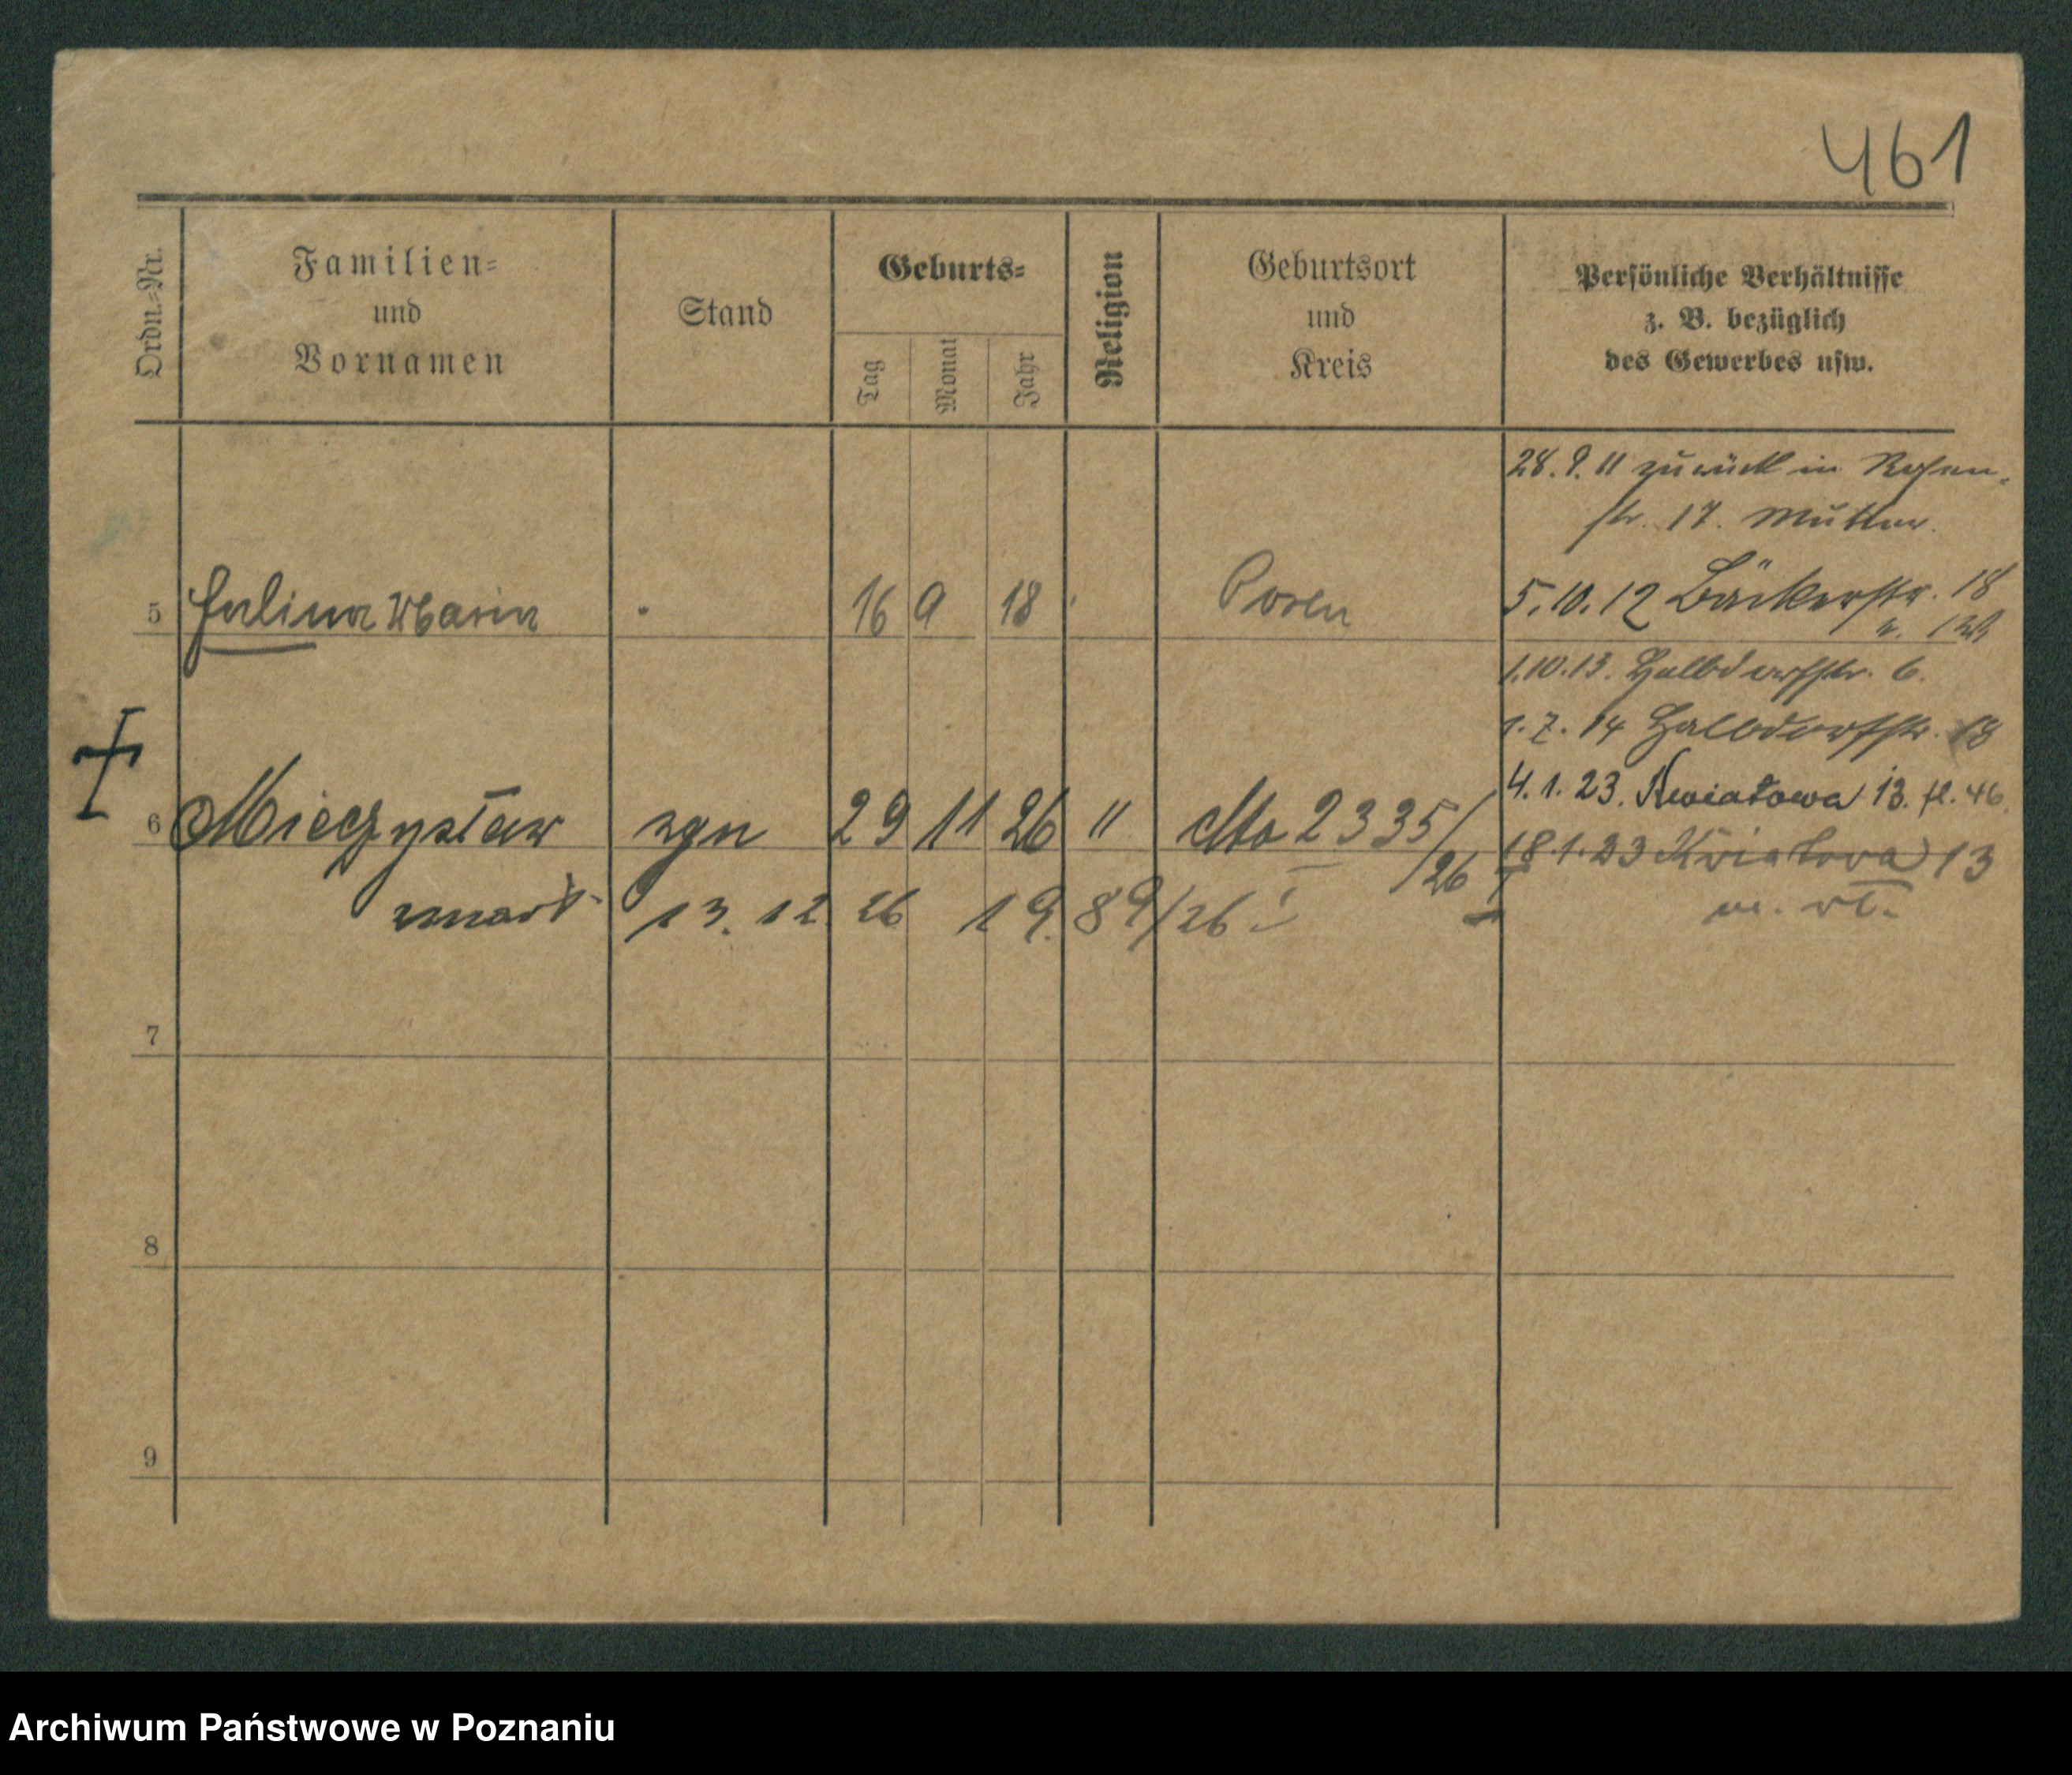 461
Ordn.-Nr.
Familien-
und
Vornamen
Stand
Geburts-
Tag
Monat
Jahr
Religion
Geburtsort
und
Kreis
Persönliche Verhältnisse
z. B. bezüglich
des Gewerbes usw.
28. 9. 11 zurück in
str. 17. Mutter.
5 Halina Maria 16 9 18 Posen
5.10.12 Bäckerstr. 18
1.10.13. Halbdorfstr. 6.
1.7.14 Halbdorfstr. 18
4.1.23. Kwiatowa 13. 46.
6 Mieczysław 29 11 26 " 2335/26
18.1.23 Kwiatowa 13
zmarł 13. 12. 26 1989/26 I
7
8
9
Archiwum Państwowe w Poznaniu